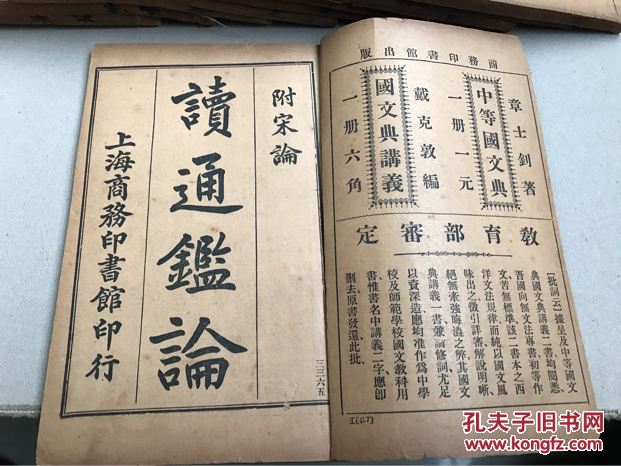 商務印書館出版
章士釗著
中等國文典
一册一元
戴克敦編
國文典講義
一册六角
教育部審定
【批詞云】據呈及中等國文
典國文典講義二書均閱悉
吾國向無文法專書初等作
文苦無標準該二書本之西
洋文法規律而純以國文風
味出之徵引詳審解說明晰
絕無牽強晦澁之弊其國文
典講義一書兼論修詞尤足
以資深造應均准作為中學
校及師範學校國文教科用
書惟書名中講義二字應卽
刪去原書發還此批
附宋論
讀通鑑論
上海商務印書館印行
三三六五
孔夫子旧书网
www.kongfz.com